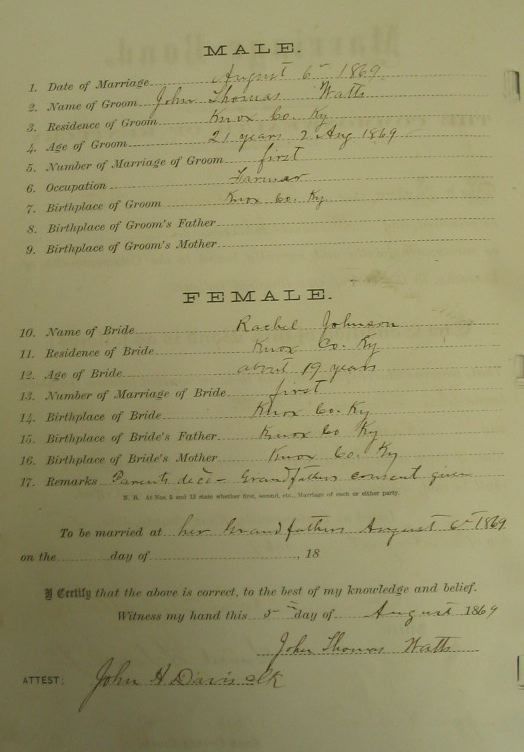 MALE.
1. Date of Marriage August 6th 1869
2. Name of Groom John Thomas Watts
3. Residence of Groom Knox Co. Ky
4. Age of Groom 21 years 2 Aug 1869
5. Number of Marriage of Groom first
6. Occupation Farmer
7. Birthplace of Groom Knox Co. Ky
8. Birthplace of Groom's Father
9. Birthplace of Groom's Mother
FEMALE.
10. Name of Bride Rachel Johnson
11. Residence of Bride Knox Co. Ky
12. Age of Bride about 19 years
13. Number of Marriage of Bride first
14. Birthplace of Bride Knox Co. Ky
15. Birthplace of Bride's Father Knox Co Ky
16. Birthplace of Bride's Mother Knox Co. Ky
17. Remarks Parents decd - Grandfathers consent given
N. B. At Nos. 5 and 13 state whether first, second, etc., Marriage of each or either party.
To be married at her Grandfathers August 6th 1869
on the day of , 18
I Certify that the above is correct, to the best of my knowledge and belief.
Witness my hand this 5th day of August 1869
John Thomas Watts
ATTEST: John H Davis clk